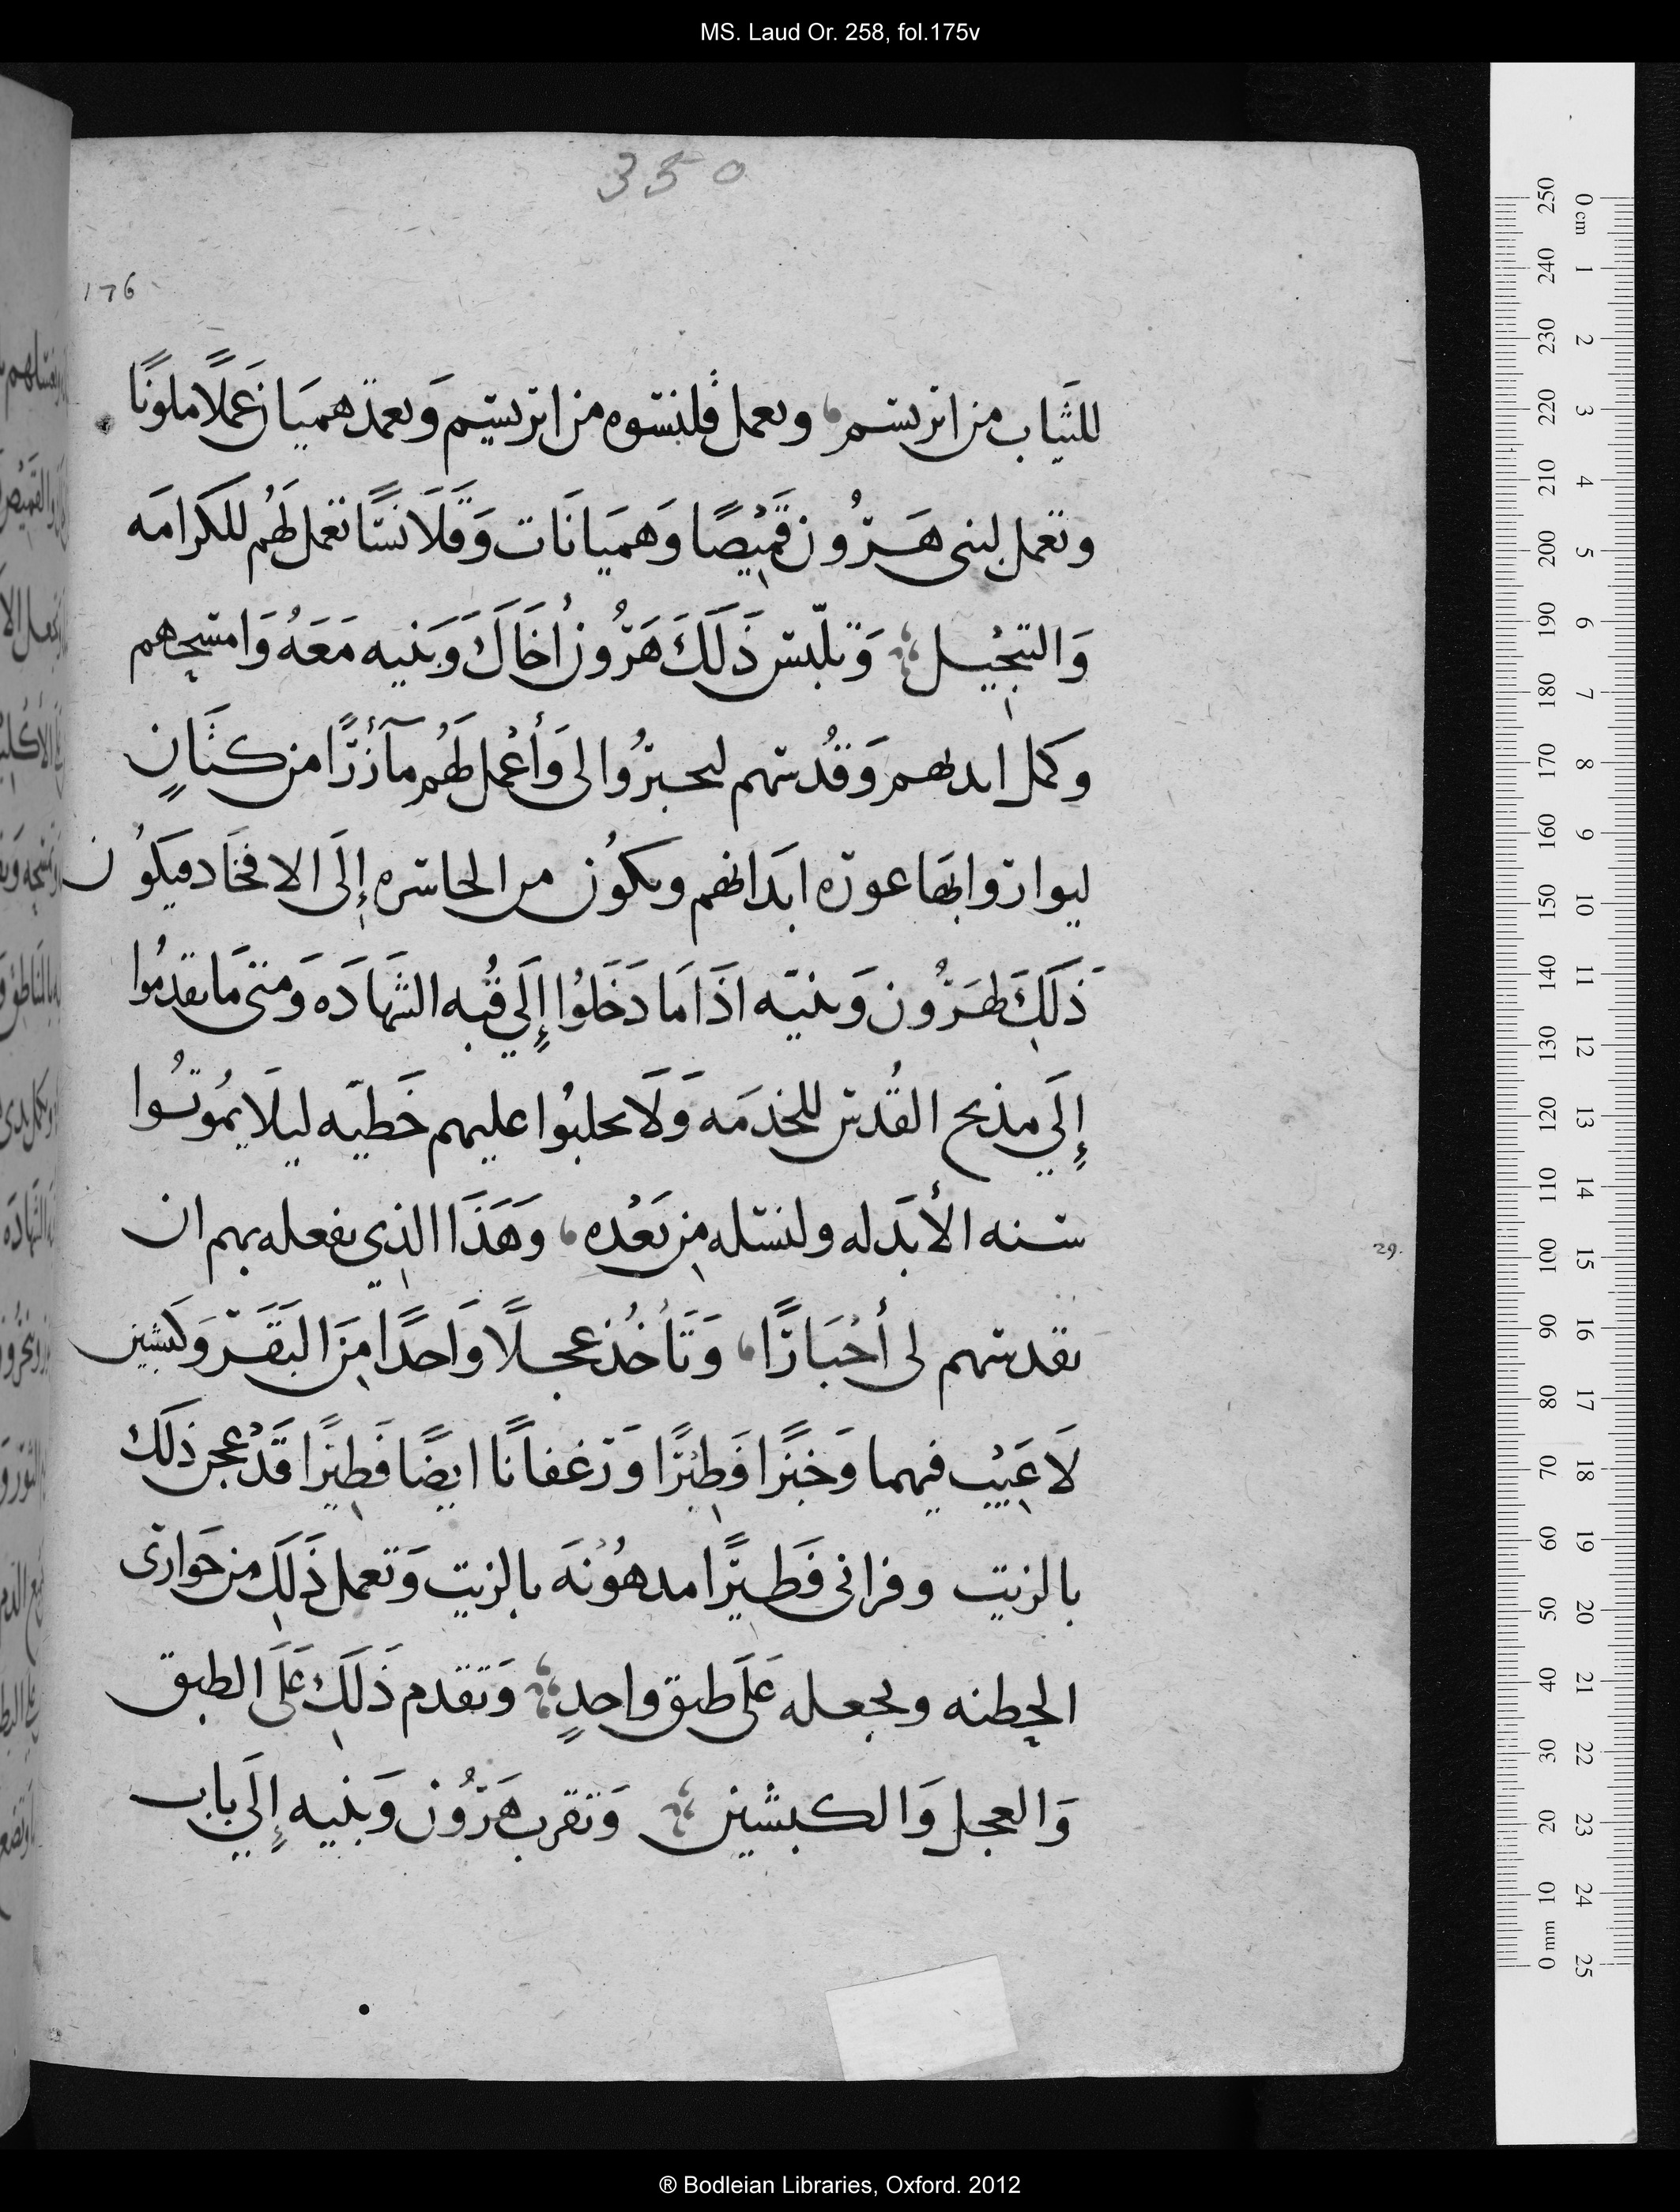 MS. Laud Or. 258, fol.175v
350
176
للثياب من ابريسم، وبعمل قلنسوه من ابريسيم وَبعمد هميَان عَملًا ملونًا
وتعمل لبنى هَرُون قَمِيْصًا وَهميَانَات وَقَلَانسًا تعمل لَهُم للكرامَه
وَالتبجِيْل وَتلبّس ذَلَكَ هَرُون أخَاكَ وَبَنيه مَعَهُ وَامسحهم
وكَمل ايديهم وَقُدسهم ليحبرُوا لى وَأعْمل لَهُم مآزرًا من كتَانٍ
ليواروا بهَا عورَه ابدَانهم ويكُون من الخاسره إلَى الافخَاد فيكوُن
ذَلَكَ لهَرُون وَبنيّه اذَا مَا دَخَلوُا إلَي قُبه الشهَادَه وَمتى مَا تقدمُوا
إلَي مذبح القُدس للخدمَه وَلَا يجلبُوا عليهم خَطيّه ليلَا يمُوتوُا
سنه الأبَد له ولنسله من بَعْده، وَهَذَا الذي تفعله بهم ان
29.
تقدسهم لى أحْبَارًا، وَتَأخُذ عجلًا وَاحدًا منَ البَقَر وَكبشين
لَا عَيْب فيهما وَخبزًا فَطِيْرًا وَرغفانًا ايضًا فَطِيْرًا قَدْ عجن ذَلك
بالزيت وفرانى فَطيرًا مدهوُنهَ بالزيت وَتعمل ذَلَك من حَوارى
الحطنه وتجعله عَلَى طبق واحدٍ وَتقدم ذَلَك عَلَى الطبق
وَالعجل وَالكبشين وَتقرب هَرُون وَبنيه إلَي باب
® Bodleian Libraries, Oxford. 2012